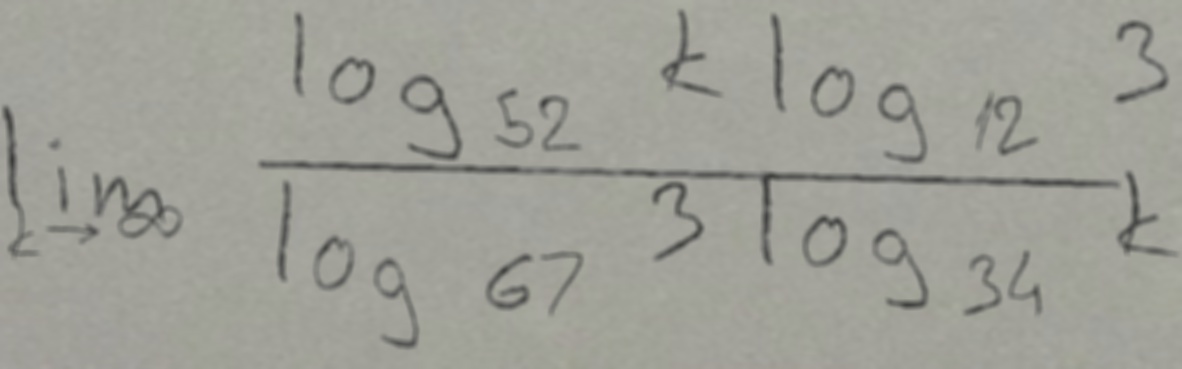 \lim_{k \to \infty} \frac{\log_{52} k \log_{12} 3}{\log_{67} 3 \log_{34} k}